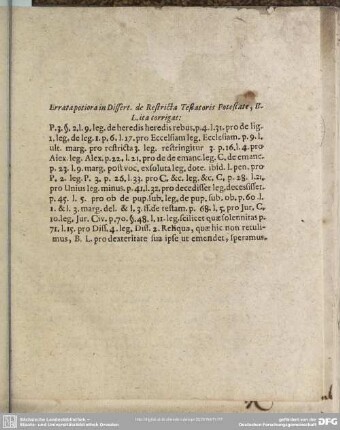 Errata potiora in Dissert. de Restricta Testatoris Potestate, B.
L. ita corrigat:
P. 3. §. 2. l. 9. leg. de heredis heredis rebus, p. 4. l. 31. pro de lig.
l. leg. de leg. 1. p. 6. l. 17. pro Eccelsiam leg. Ecclesiam. p. 9. l.
ult. marg. pro restricta 3. leg. restringitur 3. p. 16. l. 4. pro
Aiex. leg. Alex. p. 22. l. 21. pro de de emanc. leg. C. de emanc.
p. 23. l. 9. marg. post voc. exsoluta leg. dote. ibid. l. pen. pro
P. 2. leg. P. 3. p. 26. l. 33. pro C. &c. leg. &c. C. p. 28. l. 21.
pro Unius leg. minus. p. 41. l. 32. pro decedisset leg. decessisset.
p. 45. l. 5. pro ob de pup. sub. leg. de pup. sub. ob. p. 60. l.
1. & l. 3. marg. del. & l. 3. ff. de testam. p. 68. l. 5. pro Jur. C.
10. leg. Jur. Civ. p. 70. §. 48. l. 11. leg. scilicet quæ solennitas p.
71. l. 15. pro Diss. 4. leg. Diss. 2. Reliqua, quæ hic non retuli-
mus, B. L. pro dexteritate sua ipse ut emendet, speramus.
Sächsische Landesbibliothek -
Staats- und Universitätsbibliothek Dresden
gefördert von der
Deutschen Forschungsgemeinschaft
DFG